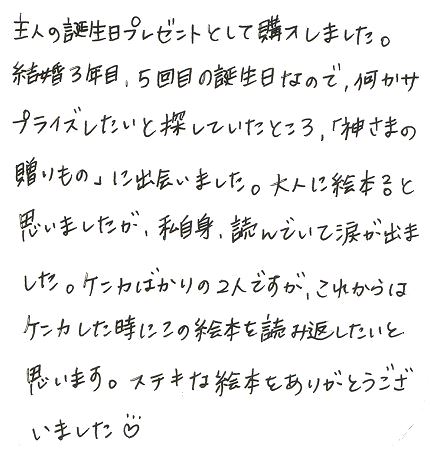 主人の誕生日プレゼントとして購入しました。
結婚3年目、5回目の誕生日なので、何かサ
プライズしたいと探していたところ、「神さまの
贈りもの」に出会いました。大人に絵本?と
思いましたが、私自身、読んでいて涙が出ま
した。ケンカばかりの2人ですが、これからは
ケンカした時にこの絵本を読み返したいと
思います。ステキな絵本をありがとうござ
いました♡